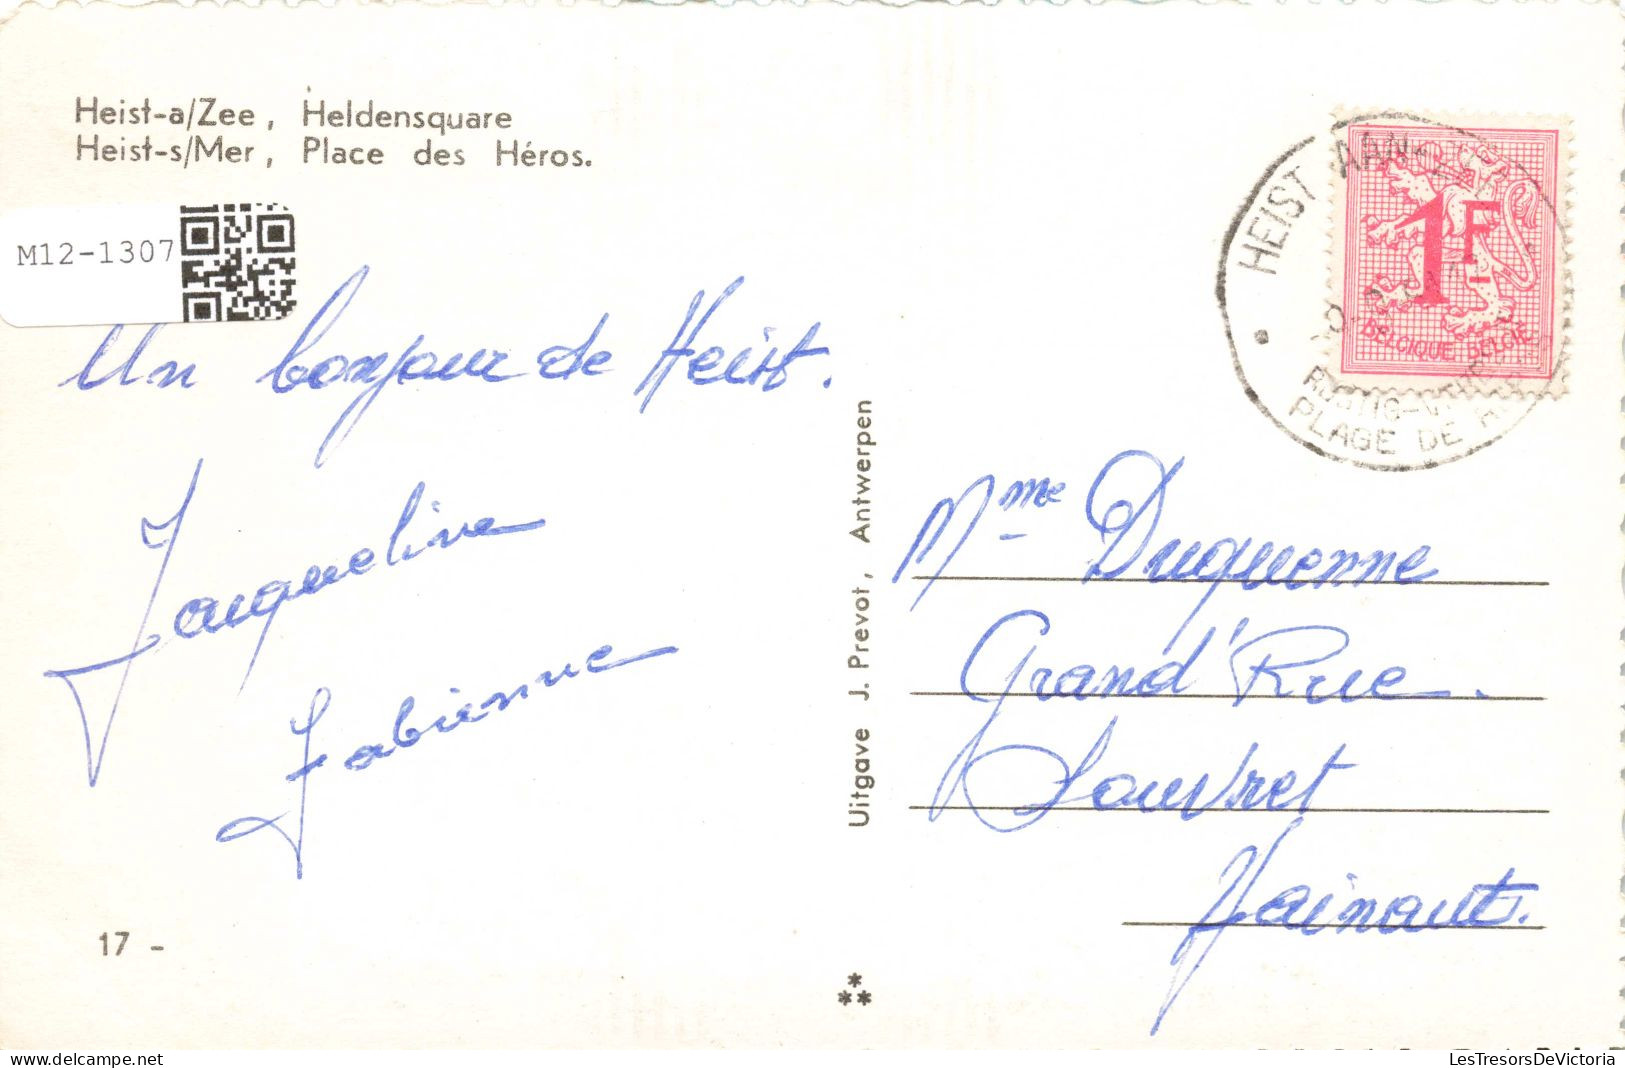 Heist-a/Zee, Heldensquare
Heist-s/Mer, Place des Héros.
M12-1307
Un bonjour de Heist.
Jacqueline
Fabienne
17 -
Uitgave J. Prevot, Antwerpen
HEIST AAN
PLAGE DE
1F
BELGIQUE BELGIE
Mme Duquenne
Grand'Rue.
Souvret
Hainaut.
LesTresorsDeVictoria